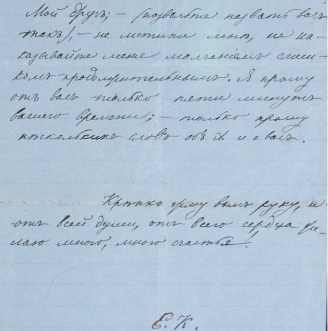 Мой другъ, — (позвольте назвать васъ
такъ), — не мстите мнѣ, не на-
казывайте меня молчаніемъ слиш-
комъ продолжительнымъ. Я прошу
отъ васъ только пяти минутъ
вашего времени, — только прошу
нѣсколькихъ словъ объ и о васъ.
Крѣпко жму вамъ руку, и
отъ всей души, отъ всего сердца же-
лаю много, много счастья.
Е. К.